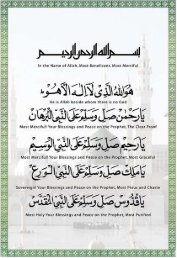 بسم الله الرحمن الرحيم
In the Name of Allah, Most Beneficent, Most Merciful
هو الله الذي لا إله إلا هو
He is Allah beside whom there is no God
يا رحمن صل وسلم على النبي البرهان
Most Merciful! Your Blessings and Peace on the Prophet, The Clear Proof
يا رحيم صل وسلم على النبي الوسيم
Most Merciful! Your Blessings and Peace on the Prophet, Most Graceful
يا ملك صل وسلم على النبي الورع
Sovereign! Your Blessings and Peace on the Prophet, Most Pious and Chaste
يا قدوس صل وسلم على النبي المقدس
Most Holy! Your Blessings and Peace on the Prophet, Most Purified